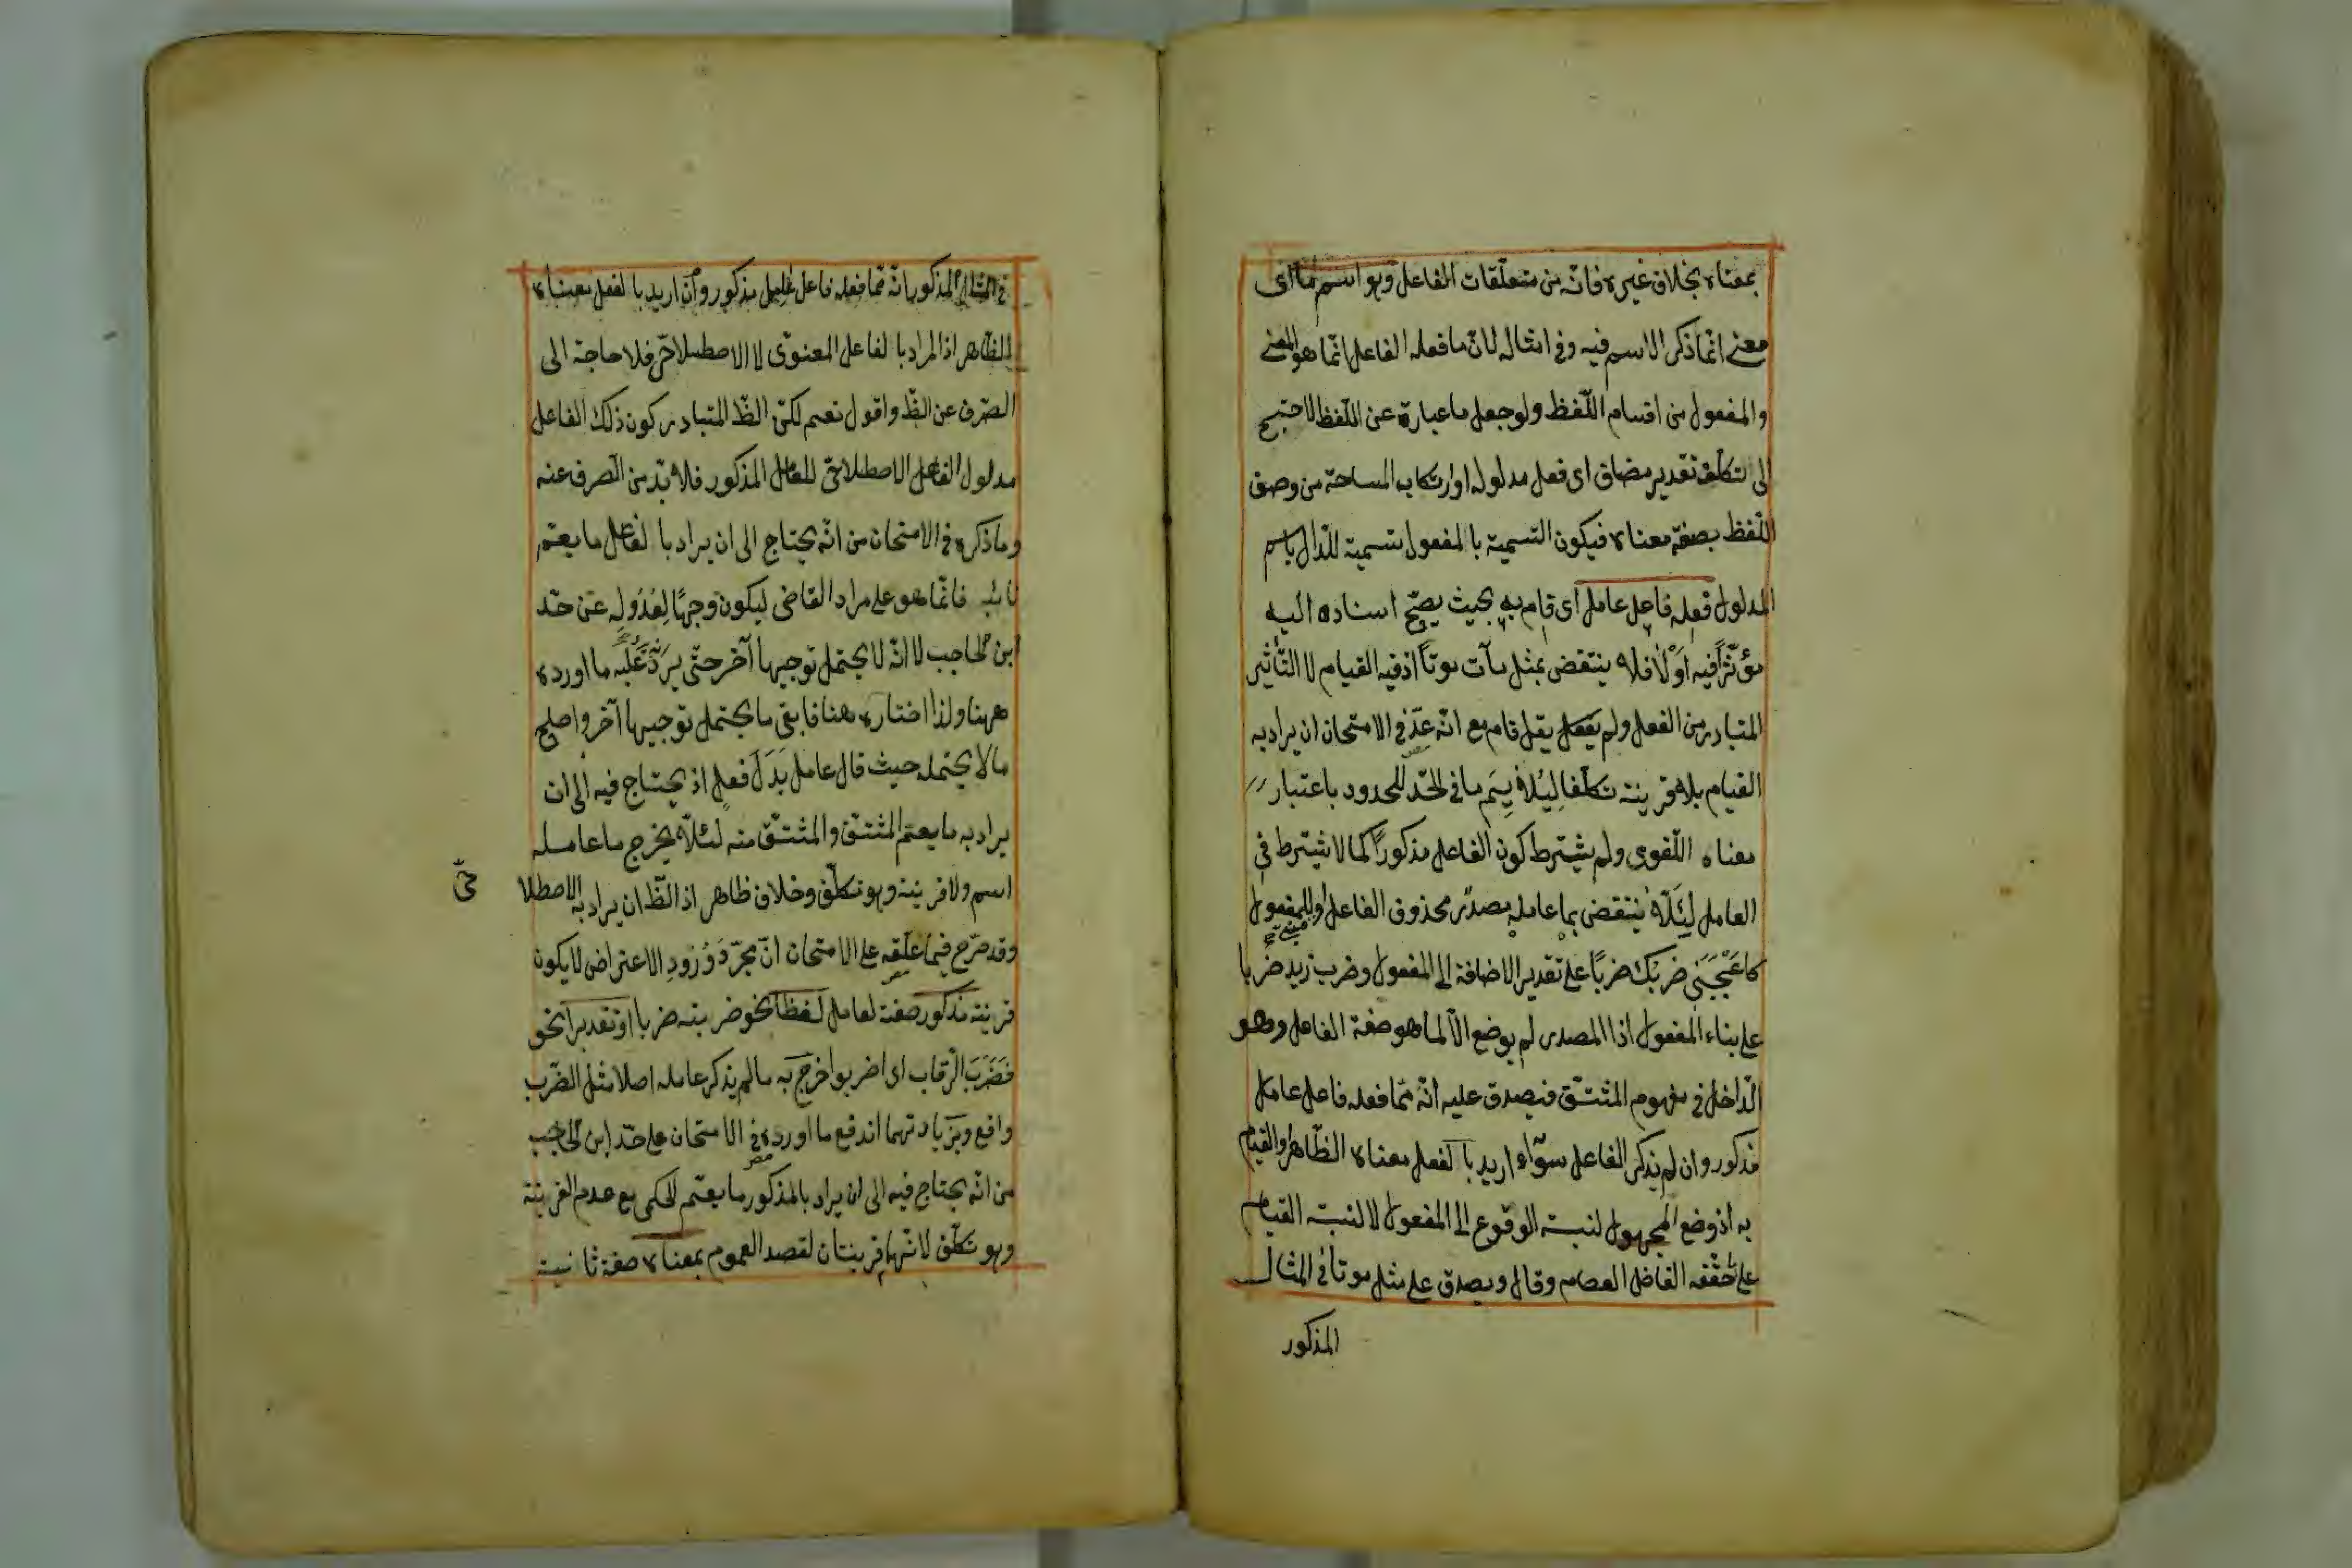 بمعناه بخلاف غيره فانّه من متعلّقات الفاعل وهو اسم ما اى
معنى انّما ذكر الاسم فيه وفى امثاله لانّ ما فعله الفاعل انّما هو المعنى
والمفعول من اقسام اللّفظ ولو جعل ما عبارة عن اللّفظ لاحتيج
الى تكلّف تقدير مضاف اى فعل مدلوله او ارتكاب المسامحة من وصف
اللّفظ بصفة معناه فيكون التسمية بالمفعول تسمية للدّال باسم
المدلول فعله فاعل عامل اى قام به بحيث يصحّ اسناده اليه
مؤثّرًا فيه اَوْ لَا فلا ينتقض بمثل مات موتاً اذ فيه القيام لا التّأثير
المتبادر من الفعل ولم يقل قام مع انّه عدّ فى الامتحان ان يراد به
القيام بلا قرينة تكلّفا ليلايم ما فى الحدّ للمحدود باعتبار
معناه اللّغوى ولم يشترط كون الفاعل مذكورًا كما لا يشترط فى
العامل لِئَلّا ينتقض بما عامله مصدر محذوف الفاعل او للمفعول
كاعْجَبَنى ضربك ضربًا على تقدير الاضافة الى المفعول وضرب زيد ضربا
على بناء المفعول اذا المصدر لم يوضع الّا لما هو صفة الفاعل وهو
الدّاخل فى مفهوم المشتقّ فيصدق عليه انّه ممّا فعله فاعل عامل
مذكور وان لم يذكر الفاعل سوآء اريد بالفعل معناه الظّاهر او القيام
به اذ وضع المجهول لنسبة الوقوع الى المفعول لا لنسبة القيام
على حقّقه الفاضل العصام وقال ويصدق على مثل موتا فى المثال
المذكور
فى المثال المذكور انّه ممّا فعله فاعل عامل مذكور وان اريد بالفعل معناه
الظّاهر اذ المراد بالفاعل المعنوىّ لا الاصطلاحىّ فلا حاجة الى
الصّرف عن الظّ واقول نعم لكنّ الظّ المتبادر كون ذلك الفاعل
مدلول الفاعل الاصطلاحىّ للعامل المذكور فلا بدّ من الصرف عنه
وما ذكره فى الامتحان من انّه يحتاج الى ان يراد بالفاعل ما يعمّ
نائبه فانّما هو على مراد القاضى ليكون وجهًا لِعُدُولِهِ عَنْ حدّ
ابن الحاجب لا انّه لا يحتمل توجيها آخر حتّى يرد عليه ما اورده
ههنا ولذا اختاره هنا فابقى ما يحتمل توجيها آخر واصلح
ما لا يحتمله حيث قال عامل بَدَلَ فعل اذ يحتاج فيه الى ان
يراد به ما يعمّ المشتقّ والمشتقّ منه لئلّا يخرج ما عامله
اسم ولا قرينة وهو تكلّف وخلاف ظاهر اذ الظّ ان يراد به الاصطلا
حىّ
وقد صرّح فيما علّقه على الامتحان انّ مجرّد وُرُودِ الاعتراض لا يكون
قرينة مذكور صفة لعامل لفظا نحو ضربته ضربا او تقديرا نحو
فَضَرْبَ الرّقاب اى اضربوا خرج به ما لم يذكر عامله اصلا مثل الضّرب
واقع وبزيادتهما اندفع ما اورده فى الامتحان على حدّ ابن الحاجب
من انّه يحتاج فيه الى ان يراد بالمذكور ما يعمّ الحكمى مع عدم القرينة
وهو تكلّف لانّهما قرينتان لقصد العموم بمعناه صفة ثانية